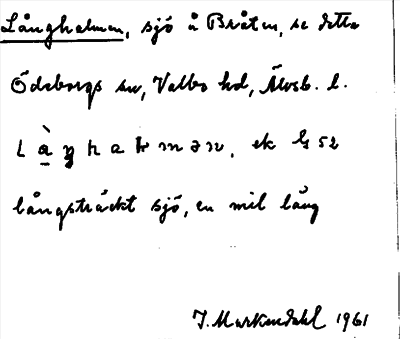 Långhalmen, sjö å Bråten, se detta
Ödeborgs sn, Valbo hd, Älvsb. l.
ek G 52
långsträckt sjö, en mil lång
J. Markendahl 1961